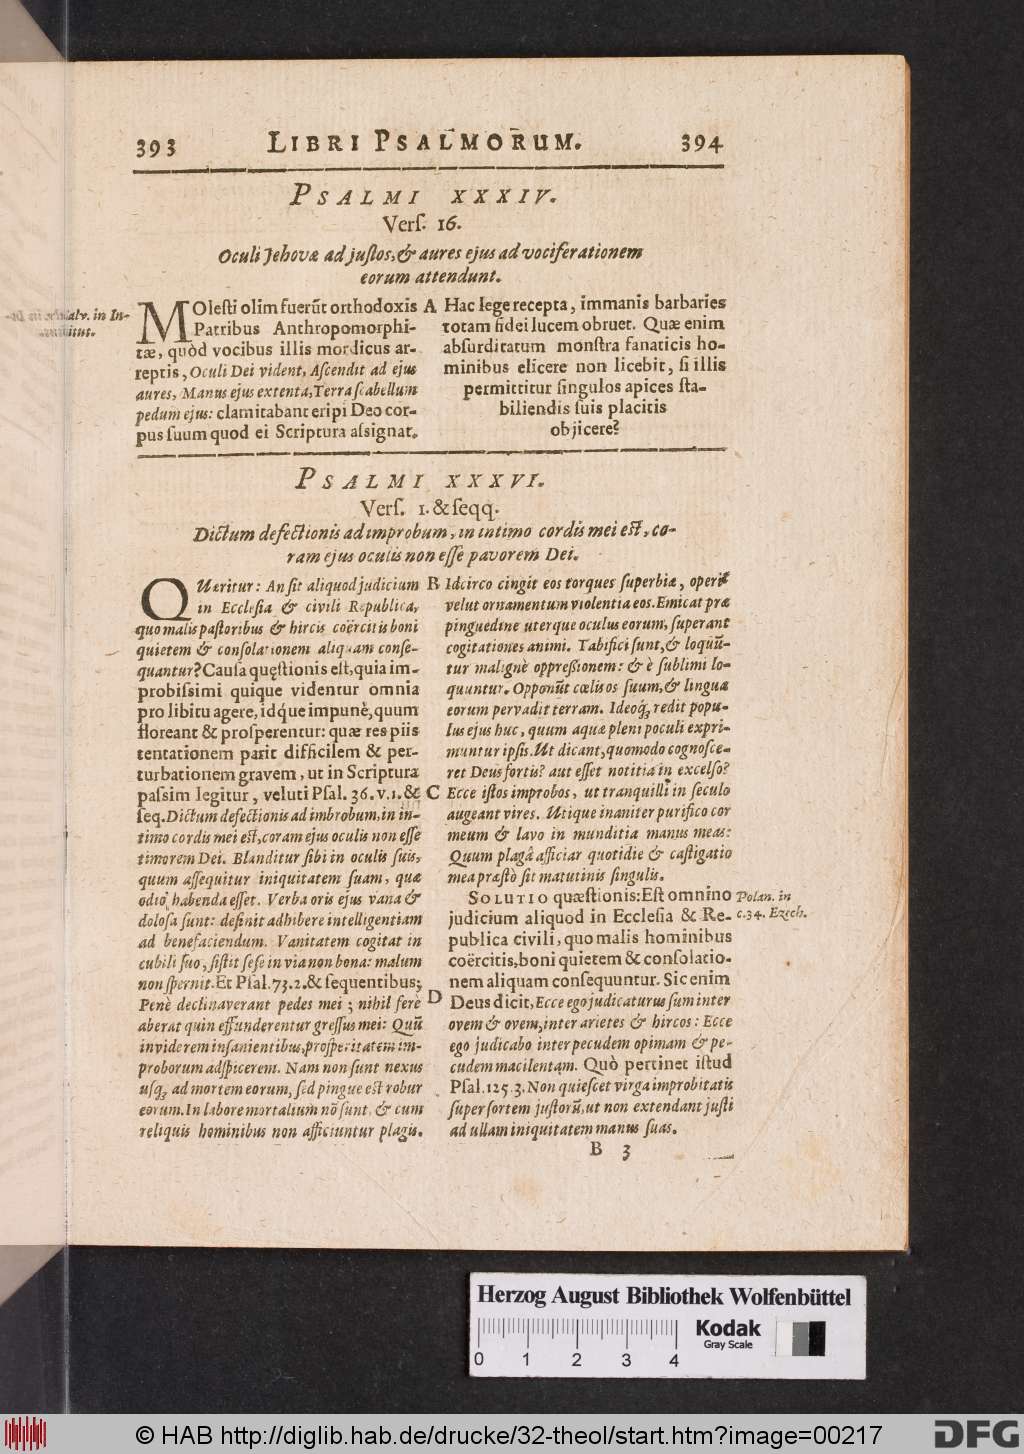 393 LIBRI PSALMORUM. 394
PSALMI XXXIV.
Verſ. 16.
Oculi Jehovæ ad juſtos, & aures ejus ad vociferationem
eorum attendunt.
MOleſti olim fuerũt orthodoxis
Patribus Anthropomorphi-
tæ, quòd vocibus illis mordicus ar-
reptis, Oculi Dei vident, Aſcendit ad ejus
aures, Manus ejus extenta, Terra ſcabellum
pedum ejus: clamitabant eripi Deo cor-
pus ſuum quod ei Scriptura aſsignat.
A Hac lege recepta, immanis barbaries
totam fidei lucem obruet. Quæ enim
abſurditatum monſtra fanaticis ho-
minibus elicere non licebit, ſi illis
permittitur ſingulos apices ſta-
biliendis ſuis placitis
objicere?
PSALMI XXXVI.
Verſ. 1. & ſeqq.
Dictum defectionis ad improbum, in intimo cordis mei eſt, co-
ram ejus oculis non eſſe pavorem Dei.
QUæritur: An ſit aliquod judicium
in Eccleſia & civili Republica,
quo malis paſtoribus & hircis coërcitis boni
quietem & conſolationem aliquam conſe-
quantur? Cauſa quęſtionis eſt, quia im-
probiſsimi quique videntur omnia
pro libitu agere, idq́ue impunè, quum
floreant & proſperentur: quæ res piis
tentationem parit difficilem & per-
turbationem gravem, ut in Scriptura
paſsim legitur, veluti Pſal. 36. v. 1. &
ſeq. Dictum defectionis ad imbrobum, in in-
timo cordis mei eſt, coram ejus oculis non eſſe
timorem Dei. Blanditur ſibi in oculis ſuis,
quum aſſequitur iniquitatem ſuam, quæ
odio habenda eſſet. Verba oris ejus vana &
doloſa ſunt: deſinit adhibere intelligentiam
ad benefaciendum. Vanitatem cogitat in
cubili ſuo, ſiſtit ſeſe in via non bona: malum
non ſpernit. Et Pſal. 73. 2. & ſequentibus;
Penè declinaverant pedes mei; nihil ferè
aberat quin effunderentur greſſus mei: Quũ
inviderem inſanientibus, proſperitatem im-
proborum adſpicerem. Nam non ſunt nexus
uſq́; ad mortem eorum, ſed pingue eſt robur
eorum. In labore mortalium nõ ſunt, & cum
reliquis hominibus non afficiuntur plagis.
B Idcirco cingit eos torques ſuperbiæ, operit
velut ornamentum violentia eos. Emicat præ
pinguedine uterque oculus eorum, ſuperant
cogitationes animi. Tabifici ſunt, & loquũ-
tur malignè oppreßionem: & è ſublimi lo-
quuntur. Opponũt cœlis os ſuum, & lingua
eorum pervadit terram. Ideoq́; redit popu-
lus ejus huc, quum aquæ pleni poculi expri-
muntur ipſis. Ut dicant, quomodo cognoſce-
ret Deus fortis? aut eſſet notitia in excelſo?
C Ecce iſtos improbos, ut tranquilli in ſeculo
augeant vires. Utique inaniter purifico cor
meum & lavo in munditia manus meas:
Quum plagâ afficiar quotidie & caſtigatio
mea præſtò ſit matutinis ſingulis.
SOLUTIO quæſtionis: Eſt omnino
judicium aliquod in Eccleſia & Re-
publica civili, quo malis hominibus
coërcitis, boni quietem & conſolatio-
nem aliquam conſequuntur. Sic enim
D Deus dicit, Ecce ego judicaturus ſum inter
ovem & ovem, inter arietes & hircos: Ecce
ego judicabo inter pecudem opimam & pe-
cudem macilentam. Quò pertinet iſtud
Pſal. 125. 3. Non quieſcet virga improbitatis
ſuper ſortem juſtorũ, ut non extendant juſti
ad ullam iniquitatem manus ſuas.
Polan. in
c. 34. Ezech.
B 3
Herzog August Bibliothek Wolfenbüttel
0 1 2 3 4
Kodak
Gray Scale
© HAB http://diglib.hab.de/drucke/32-theol/start.htm?image=00217
DFG